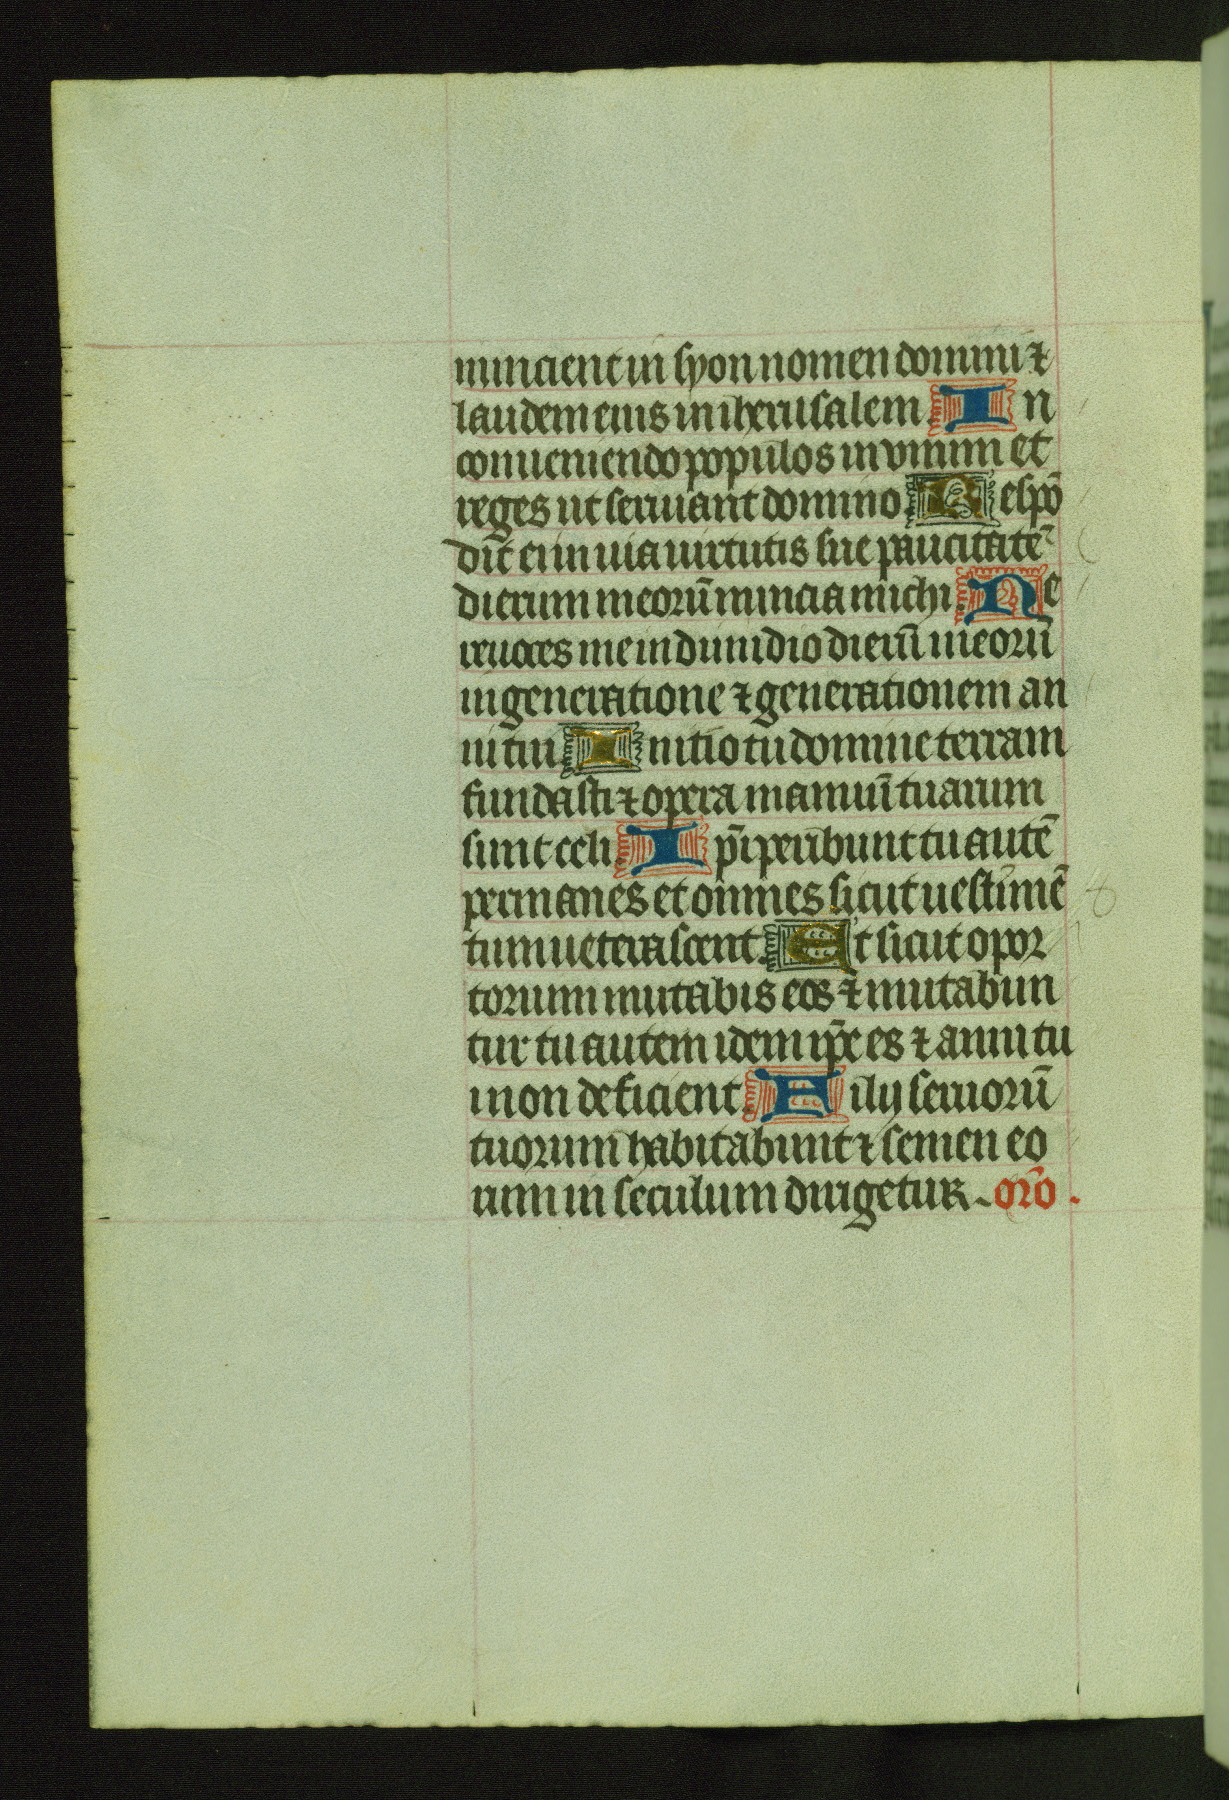 nuncient in syon nomen domini ⁊
laudem eius in iherusalem In
conueniendo populos in vnum et
reges ut seruiant domino Respō
dit ei in uia uirtutis sue paucitatē
dierum meorū nuncia michi Ne
reuoces me in dimidio dierū meorū
in generatione ⁊ generationem an
ni tui Initio tu domine terram
fundasti ⁊ opera manuū tuarum
sunt celi Ip̄i peribunt tu autē
permanes et omnes sicut uestimē
tum ueterascent Et sicut opor
torium mutabis eos ⁊ mutabun
tur tu autem idem ip̄e es ⁊ anni tu
i non deficient Filij seruorū
tuorum habitabunt ⁊ semen eo
rum in seculum dirigetur. or̄o.